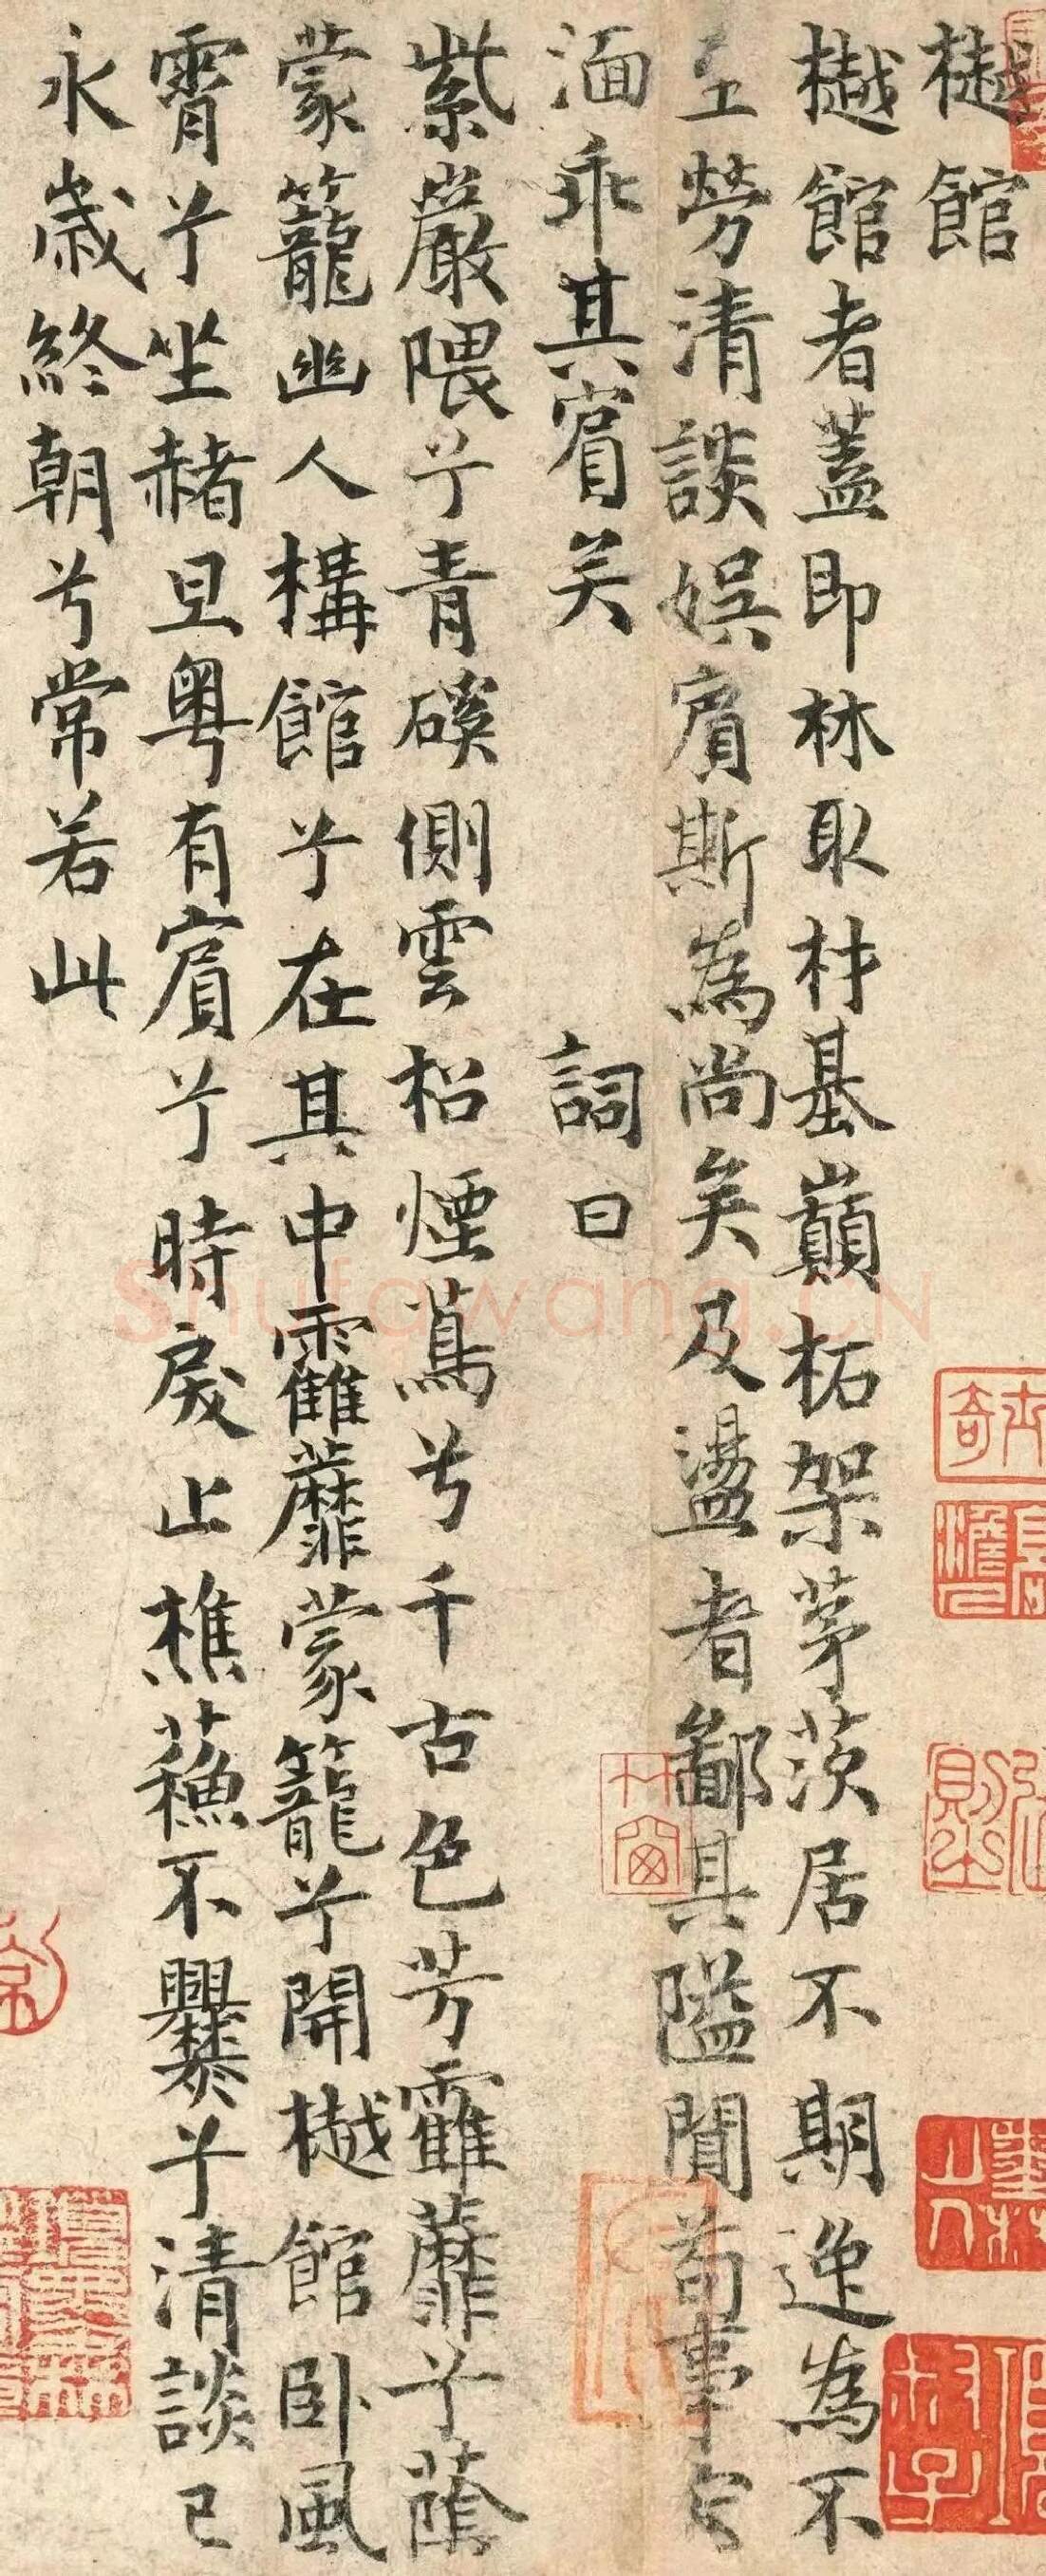 樾館
樾館者蓋即林取材基巔柘架茅茨居不期逸為不
至勞清談娛賓斯為尚矣及盪者鄙其隘閴苟事宏
湎乖其賓矣 詞曰
紫巖隈兮青磎側雲松煙蔦兮千古色芳靃蘼兮蔭
蒙籠幽人構館兮在其中靃蘼蒙籠兮開樾館臥風
霄兮坐赭旦粵有賓兮時戾止樵蘓不爨兮清談已
永歲終朝兮常若此
Shufawang.CN